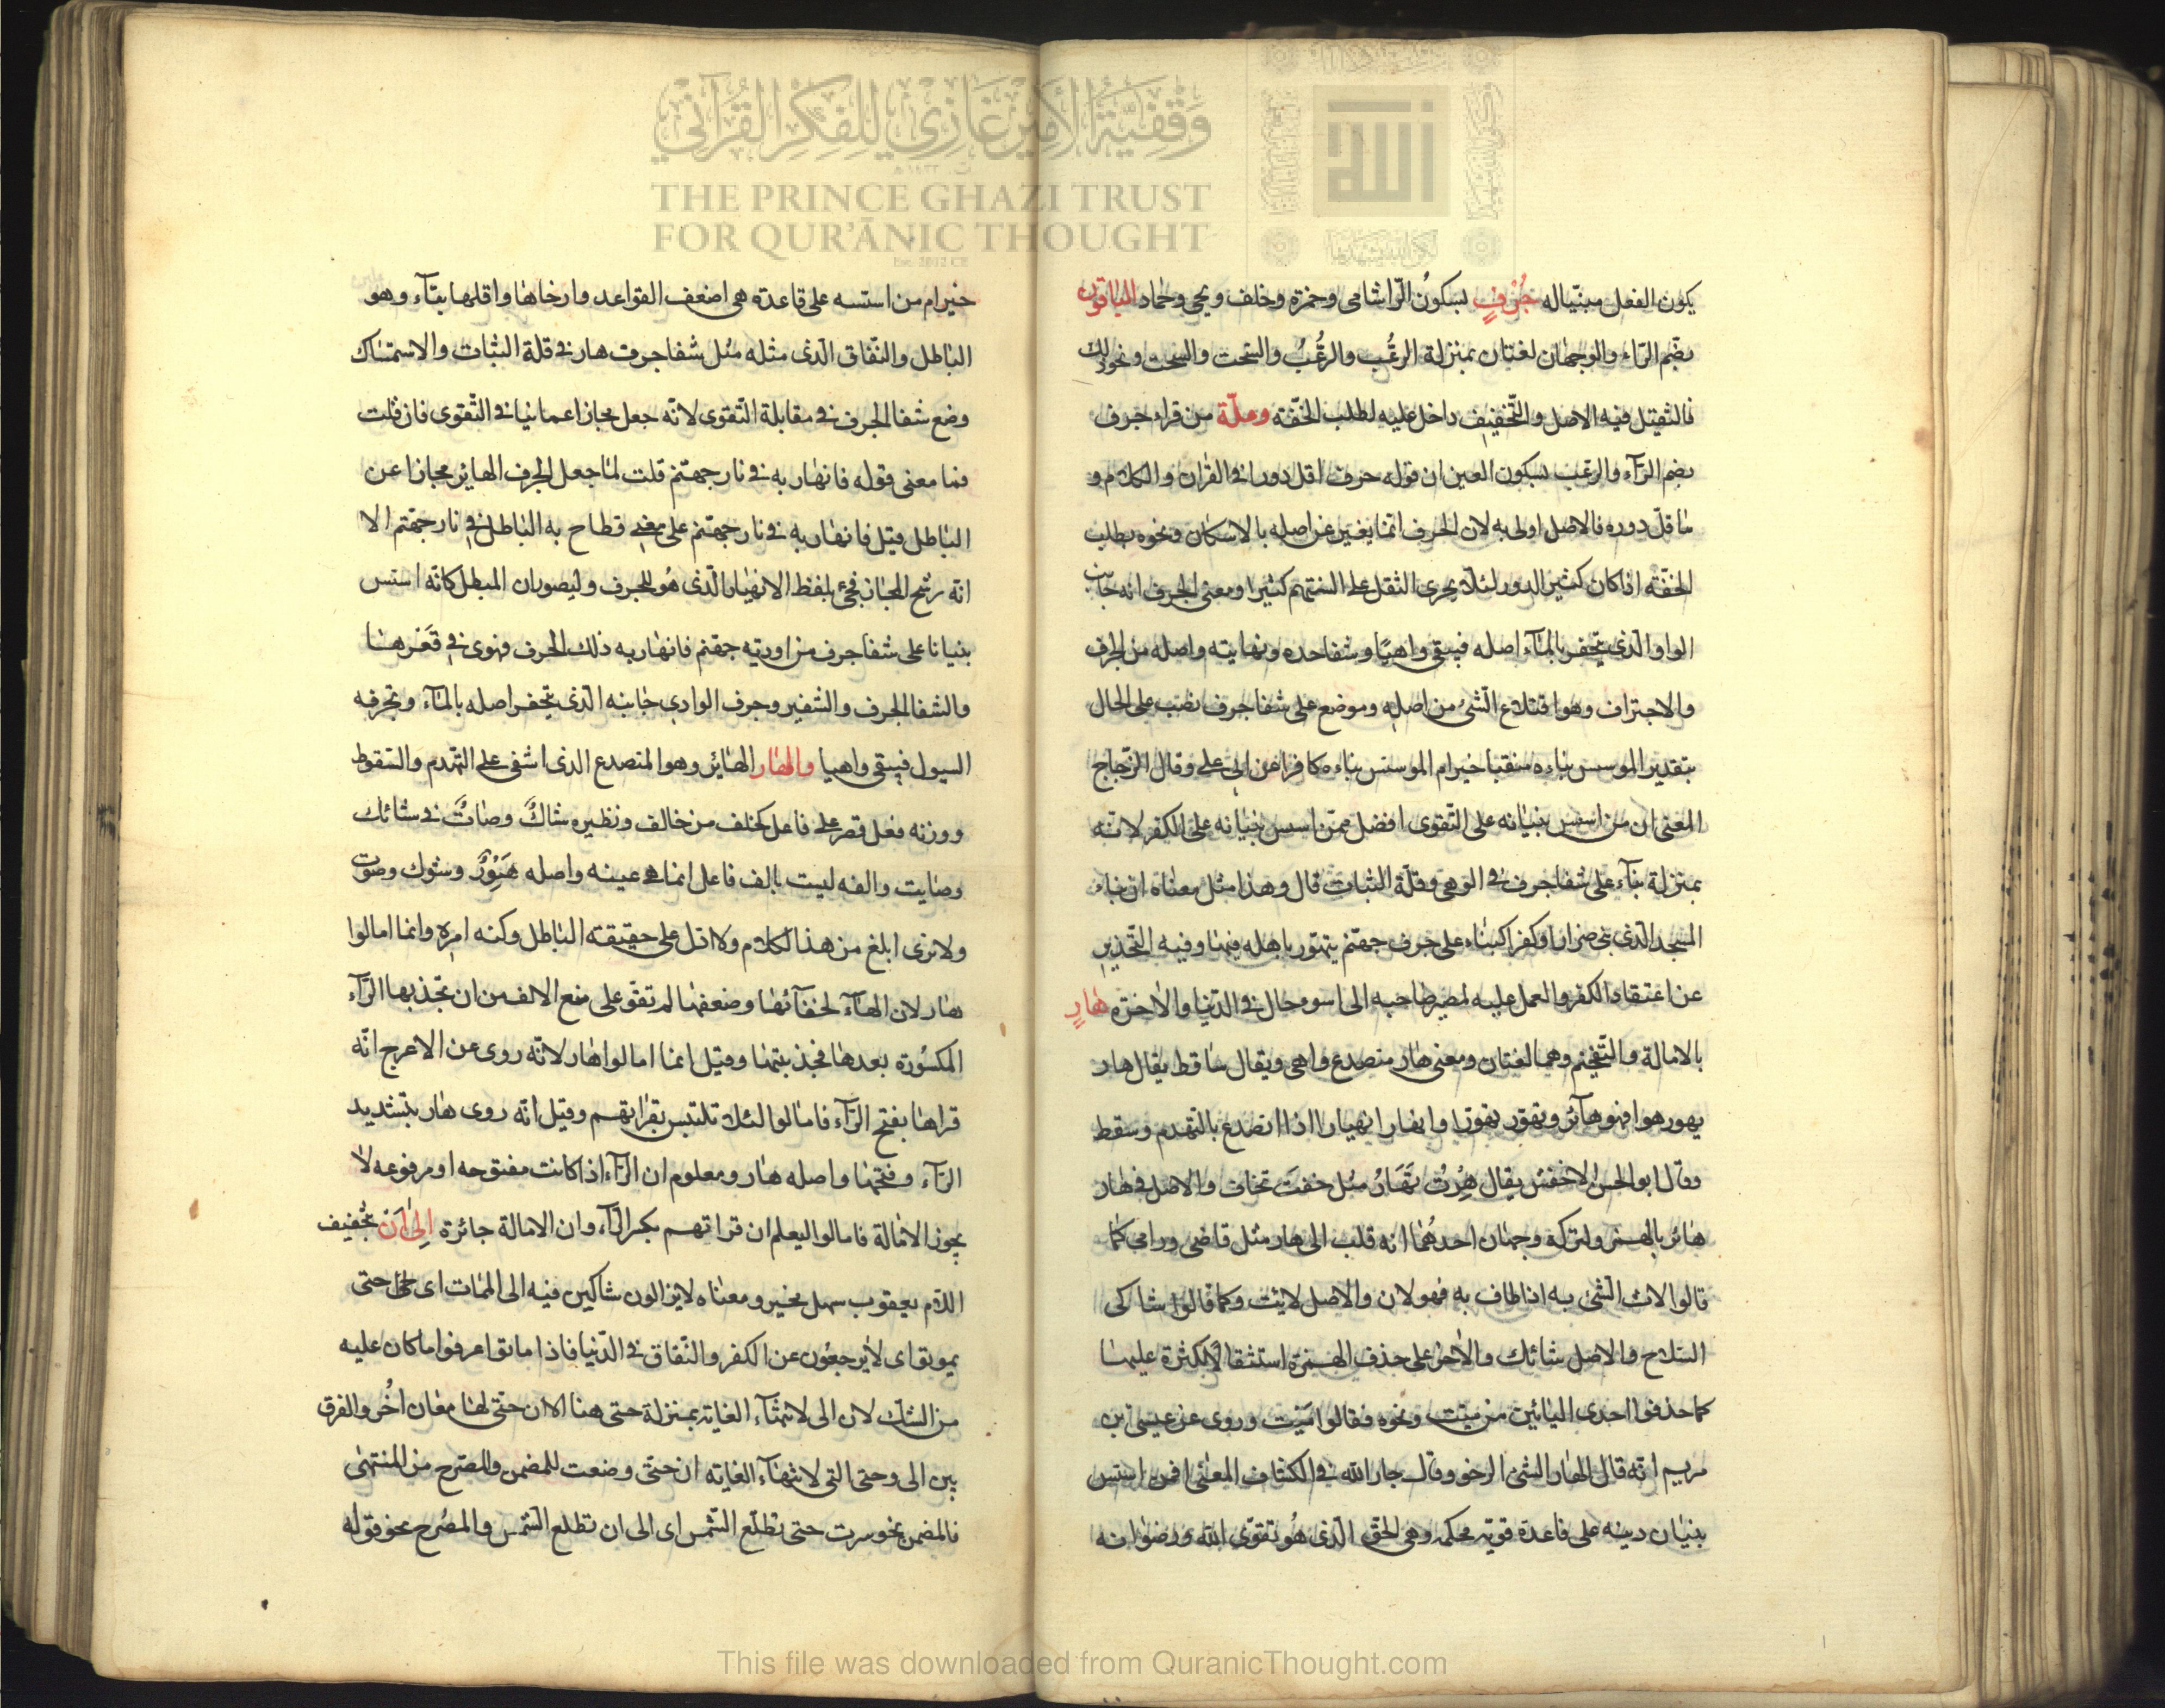 وقفية الأمير غازي للفكر القرآني
THE PRINCE GHAZI TRUST
FOR QUR'ĀNIC THOUGHT
الله
يكون الفعل مبنيا له جُرْفٍ بسكون الرا شامى وحمزة وخلف ويحيى وحماد الباقون
بضم الراء والوجهان لغتان بمنزلة الرعْب والرعُب والسحت والسحت ونحو ذلك
فالثقيل فيه الاصل والتخفيف داخل عليه لطلب الخفة وعلة من قراء جرف
بضم الرآء والرعب بسكون العين ان قوله جرف اقل دورا فى القران والكلام و
ما قل دوره فالاصل اولى به لان الحرف انما يغير عن اصله بالاسكان ونحوه بطلب
الخفة اذا كان كثير الدور لئلا يجرى الثقل على السنتهم كثيرا ومعنى الجرف انه جانب
الوادالذى يتحفر بالماء اصله فيبقى واهيا وشفا حده ونهايته واصله من الجرف
والاجتراف وهو اقتلاع الشئ من اصله وموضع على شفا جرف نصب على الحال
بتقدير الموسس بناءه متقيا خير ام الموسس بناءه كافرا عن ابى على وقال الزجاج
المعنى ان من اسس بنيانه على التقوى افضل ممن اسس بنيانه على الكفر لانه
بمنزلة بنآء على شفا جرف فى الوهى وقلة الثبات قال وهذا مثل معناه ان بناء
المسجد الذى بنى ضرارا وكفرا كبناء على جرف جهنم يتهور باهله فيها وفيه التحذير
عن اعتقاد الكفر والعمل عليه لمصير صاحبه الى اسوء حال فى الدنيا والاخرة هارٍ
بالامالة والتفخيم وهما لغتان ومعنى هار منصدع واهى ويقال ساقط يقال هار
يهور هورا فهو هآئر وتهور تهورا وانهار انهيارا اذا انصدع بالتهدم وسقط
وقال ابو الحسن الاخفش يقال هِرْتُ تَهَارُ مثل خفتَ تخاف والاصل فى هار
هائر بالهمز ولتركه وجهان احدهما انه قلب الى هار مثل قاضى ورامى كما
قالوا لاث الشئ به اذا طاف به فهو لاث والاصل لايث وكما قالوا شاكى
السلاح والاصل شائك والاخر على حذف الهمزة استثقالا لكثرة عليها
كما حذفوا احدى اليائين من ميّت ونحوه فقالوا مَيْت وروى عن عيسى بن
مريم انه قال الهار الشئ الرخو وقال جار الله فى الكشاف المعنى افمن اسس
بنيان دينه على قاعدة قوية محكمة وهى الحق الذى هُو تقوى الله ورضوانه
خير ام من استسه على قاعدة هى اضعف القواعد وارخاها واقلها بقآء وهو
الباطل والنفاق الذى مثله مثل شفا جرف هار فى قلة الثبات والاستمساك
وضع شفا الجرف فى مقابلة التقوى لانه جعل مجازا عما ينافى التقوى فان قلت
فما معنى قوله فانهار به فى نار جهنم قلت لما جعل الجرف الهاير مجازا عن
الباطل قيل فانهار به فى نار جهنم على معنى فطاح به الباطل فى نار جهنم الا
انه رشح المجاز فجئ بلفظ الانهيار الذى هُو للجرف وليصور ان المبطل كانه استس
بنيانا على شفا جرف من اودية جهنم فانهار به ذلك الجرف فهوى فى قَعْرها
والشفا الجرف والشفير وجرف الوادي جانبه الذى يتحفر اصله بالمآء وتجرفه
السيول فيبقى واهيا والهار الهائر وهو المتصدع الذى اشفى على التهدم والسقوط
ووزنه فعل قصر على فاعل كخلف من خالف ونظيره شاكٌ وصاتٌ فى شائك
وصايت والفه ليست بالف فاعل انما هى عينه واصله هَوِرٌ وشوك وصوت
ولا ترى ابلغ من هذا الكلام ولا ادل على حقيقة الباطل وكنه امره وانما امالوا
هار لان الهآء لخفآئها وضعفها لم تقو على منع الالف من ان تجذبها الرآء
المكسورة بعدها فجذبتها وقيل انما امالوا هار لانه روى عن الاعرج انه
قراها بفتح الرآء فامالوا لئلا تلتبس بقراءتهم وقيل انه روى هار بتشديد
الرآء وفتحها واصله هار ومعلوم ان الراء اذا كانت مفتوحه او مرفوعه لا
يجوز الامالة فامالوا ليعلم ان قراتهم بكسر الرآء وان الامالة جائزة اِلىٰ اَنْ بتخفيف
اللام يعقوب سهل مخير ومعناه لا يزالون شاكين فيه الى الممات اى حتى
يموتوا اى لا يرجعون عن الكفر والنفاق فى الدنيا فاذا ماتوا عرفوا ما كان عليه
من الشك لان الى لانتهآء الغاية بمنزلة حتى هنا الا ان حتى لها معان اُخَر والفرق
بين الى وحتى التى لانتهآء الغاية ان حتى وضعت للمضمر والمصرح من المنتهى
فالمضمر نحو سرت حتى تطلع الشمس اى الى ان تطلع الشمس والمصرح نحو قوله
This file was downloaded from QuranicThought.com